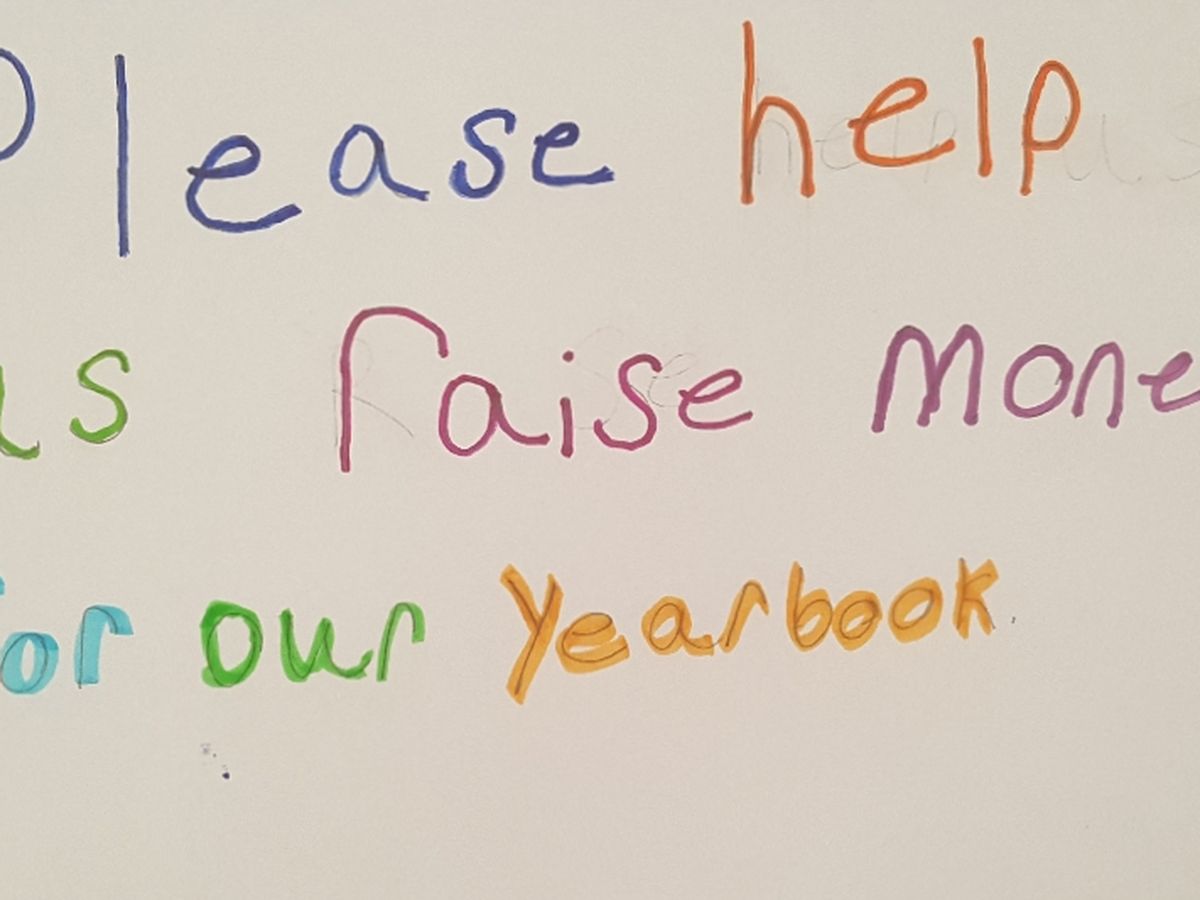 Please help
us raise Mone
for our Yearbook